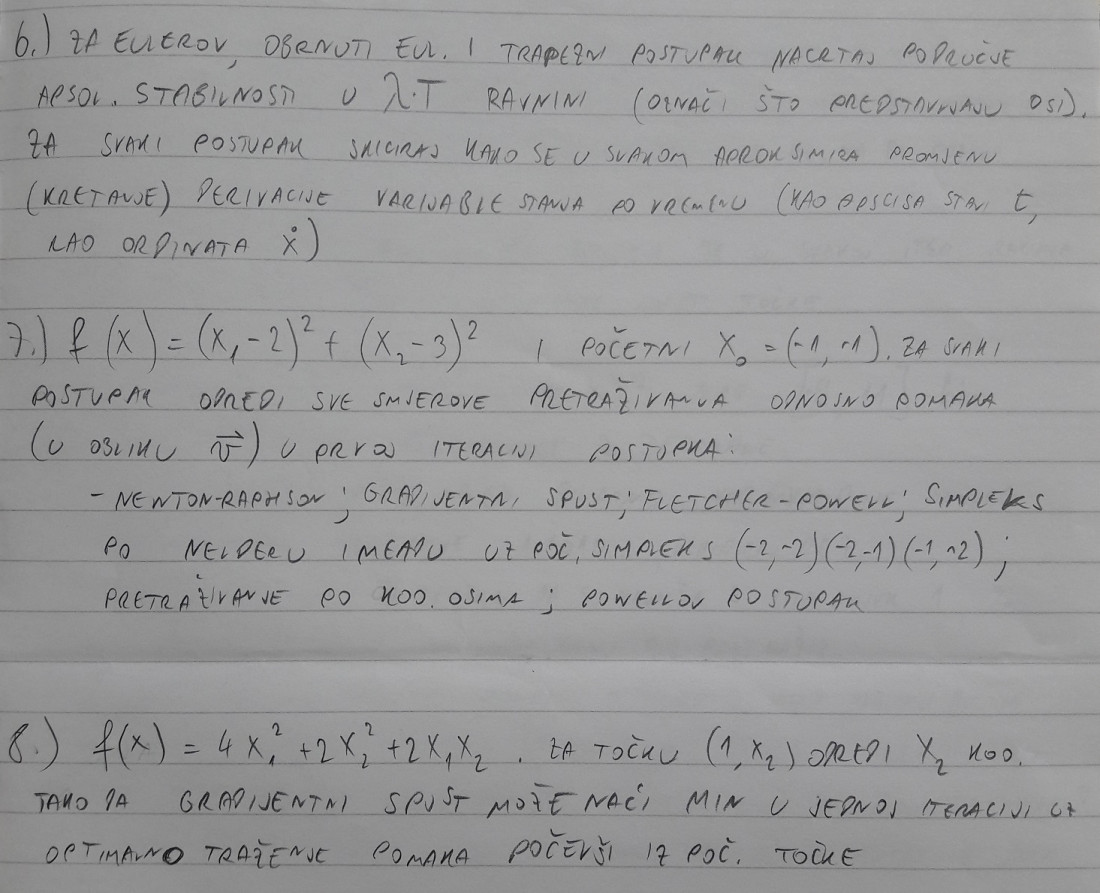 6.) ZA EULEROV, OBRNUTI EUL. I TRAPEZNI POSTUPAK NACRTAJ PODRUČJE
APSOL. STABILNOSTI U λ·T RAVNINI (OZNAČI ŠTO PREDSTAVLJAJU OSI).
ZA SVAKI POSTUPAK SKICIRAJ KAKO SE U SVAKOM APROKSIMIRA PROMJENU
(KRETANJE) DERIVACIJE VARIJABLE STANJA PO VREMENU (KAO APSCISA STAVI t,
KAO ORDINATA ẋ)
7.) f(x) = (x₁-2)² + (x₂-3)² I POČETNI X₀ = (-1,-1). ZA SVAKI
POSTUPAK ODREDI SVE SMJEROVE PRETRAŽIVANJA ODNOSNO POMAKA
(U OBLIKU v⃗) U PRVOJ ITERACIJI POSTUPKA:
- NEWTON-RAPHSON; GRADIJENTNI SPUST; FLETCHER-POWELL; SIMPLEKS
PO NELDERU I MEADU UZ POČ. SIMPLEKS (-2,-2)(-2,-1)(-1,-2);
PRETRAŽIVANJE PO KOO. OSIMA; POWELLOV POSTUPAK
8.) f(x) = 4x₁² + 2x₂² + 2x₁x₂. ZA TOČKU (1,x₂) ODREDI X₂ KOO.
TAKO DA GRADIJENTNI SPUST MOŽE NAĆI MIN U JEDNOJ ITERACIJI UZ
OPTIMALNO TRAŽENJE POMAKA POČEVŠI IZ POČ. TOČKE